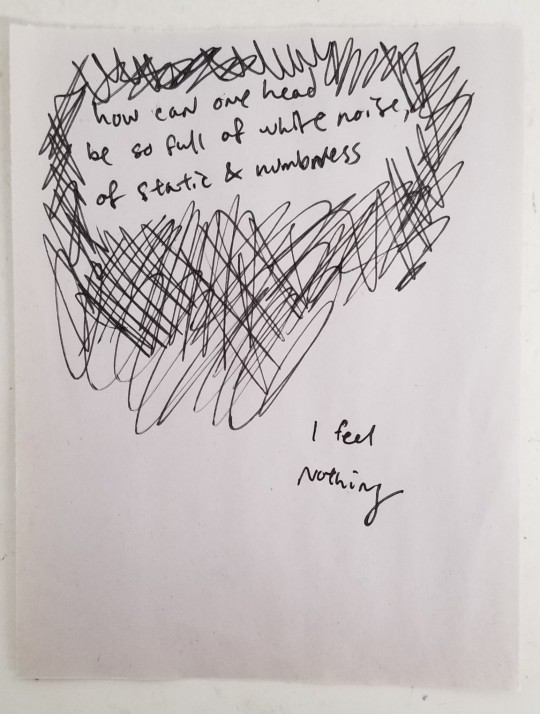 how can one head
be so full of white noise,
of static & numbness
I feel
Nothing